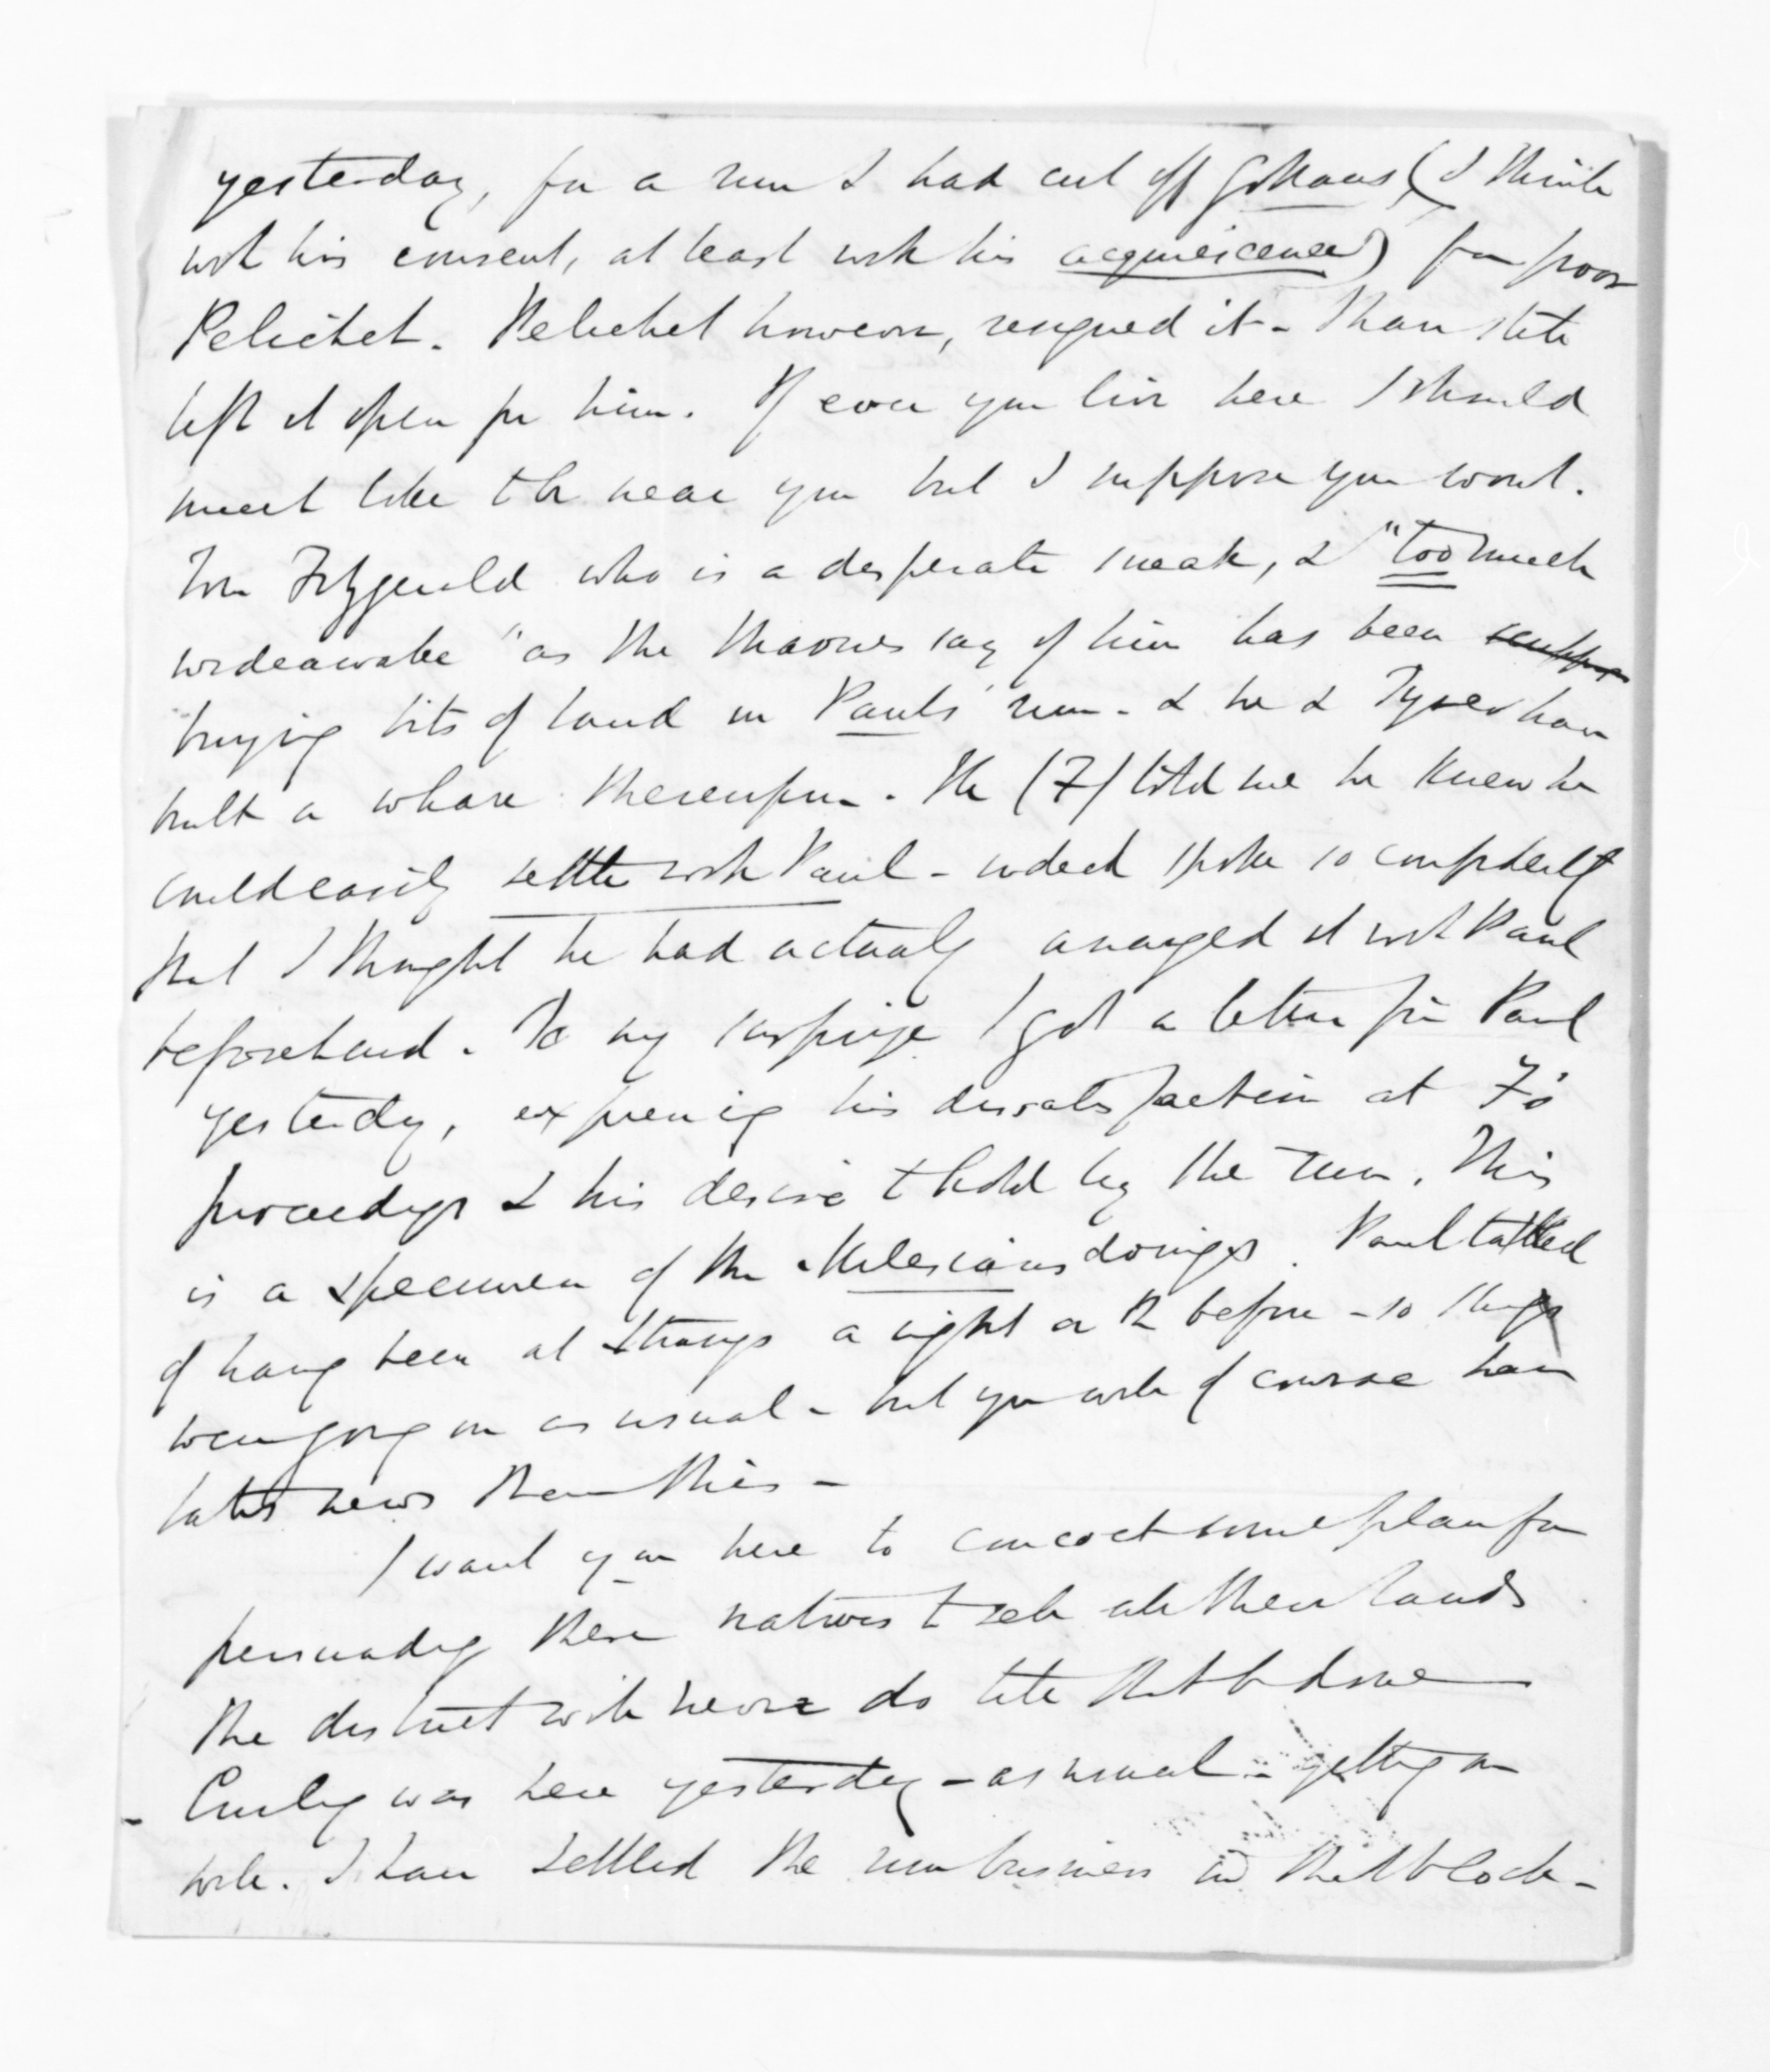 yesterday, for a run I had cut off Gollans (I think
with his consent, at least with his acquiescence) for poor
Pelichet. Pelichet however, resigned it -
left it open for him. If ever you live here I should
much like to be near you but I suppose you wont.
Tom Fitzgerald who is a desperate sneak, & "too much
wideawake" as the Maories say of him has been
buying bits of land in Pauls' run - & he & Tyser have
built a whare thereupon. He (F) told me he knew he
could easily settle with Paul - indeed spoke so confidently
that I thought he had actually arranged it with Paul
beforehand. To my surprize I got a letter from Paul
yesterday, expressing his dissatisfaction at F's
proceedings & his desire to hold by the run. This
is a specimen of the Milesians doings. Paul talked
of having been at Strangs a night or two before - so things
were going on as usual - but you will of course have
later news than this -
I want you here to concoct some plan for
persuading these natives to sell all their lands
The district will never do till that be done
- Curling was here yesterday - as usual - getting on
well. I have settled the run business in that block -